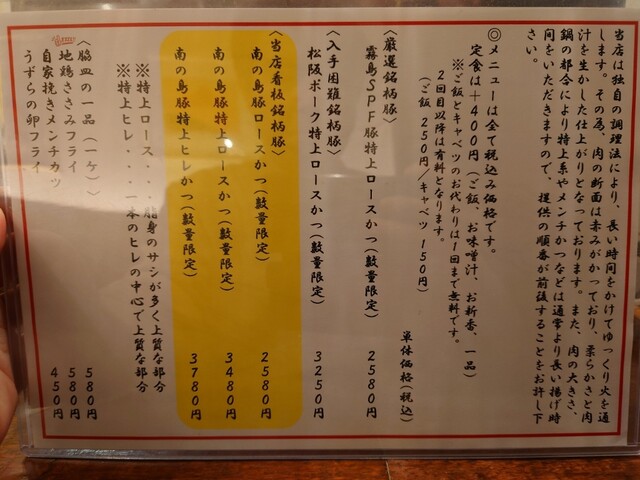 当店は独自の調理法により、長い時間をかけてゆっくり火を通
します。その為、肉の断面は赤みがかっており、柔らかさと肉
汁を生かした仕上がりとなっております。また、肉の大きさ、
鍋の都合により特上系やメンチかつなどは通常より長い揚げ時
間をいただきますので、提供の順番が前後することをお許し下
さい。
◎メニューは全て税込み価格です。
定食は+400円(ご飯、お味噌汁、お新香、一品)
※ご飯とキャベツのお代わりは1回まで無料です。
2回目以降は有料となります。
(ご飯 250円/キャベツ 150円)
単体価格(税込)
〈厳選銘柄豚〉
霧島SPF豚特上ロースかつ(数量限定) 2580円
〈入手困難銘柄豚〉
松阪ポーク特上ロースかつ(数量限定) 3250円
〈当店看板銘柄豚〉
南の島豚ロースかつ(数量限定) 2580円
南の島豚特上ロースかつ(数量限定) 3480円
南の島豚特上ヒレかつ(数量限定) 3780円
※特上ロース・・・・脂身のサシが多く上質な部分
※特上ヒレ・・・・一本のヒレの中心で上質な部分
〈脇皿の一品(一ケ)〉
地鶏ささみフライ 580円
自家挽きメンチカツ 580円
うずらの卵フライ 450円